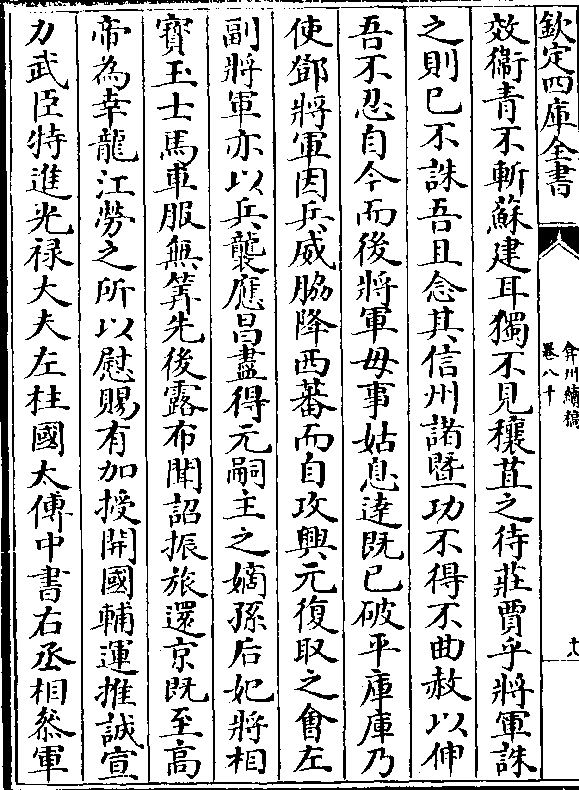 欽定四庫全書
弇州續稿
卷八十
六
效衞青不斬蘇建耳獨不見穰苴之待莊賈乎將軍誅
之則已不誅吾且念其信州諸暨功不得不曲赦以伸
吾不忍自今而後將軍毋事姑息逹既已破平庫庫乃
使鄧將軍因兵威脇降西蕃而自攻興元復取之㑹左
副將軍亦以兵襲應昌盡得元嗣主之嫡孫后妃將相
寳玉士馬車服無筭先後露布聞詔振旅還京既至高
帝為幸龍江勞之所以慰賜有加授開國輔運推誠宣
力武臣特進光禄大夫左柱國太傅中書右丞相叅軍